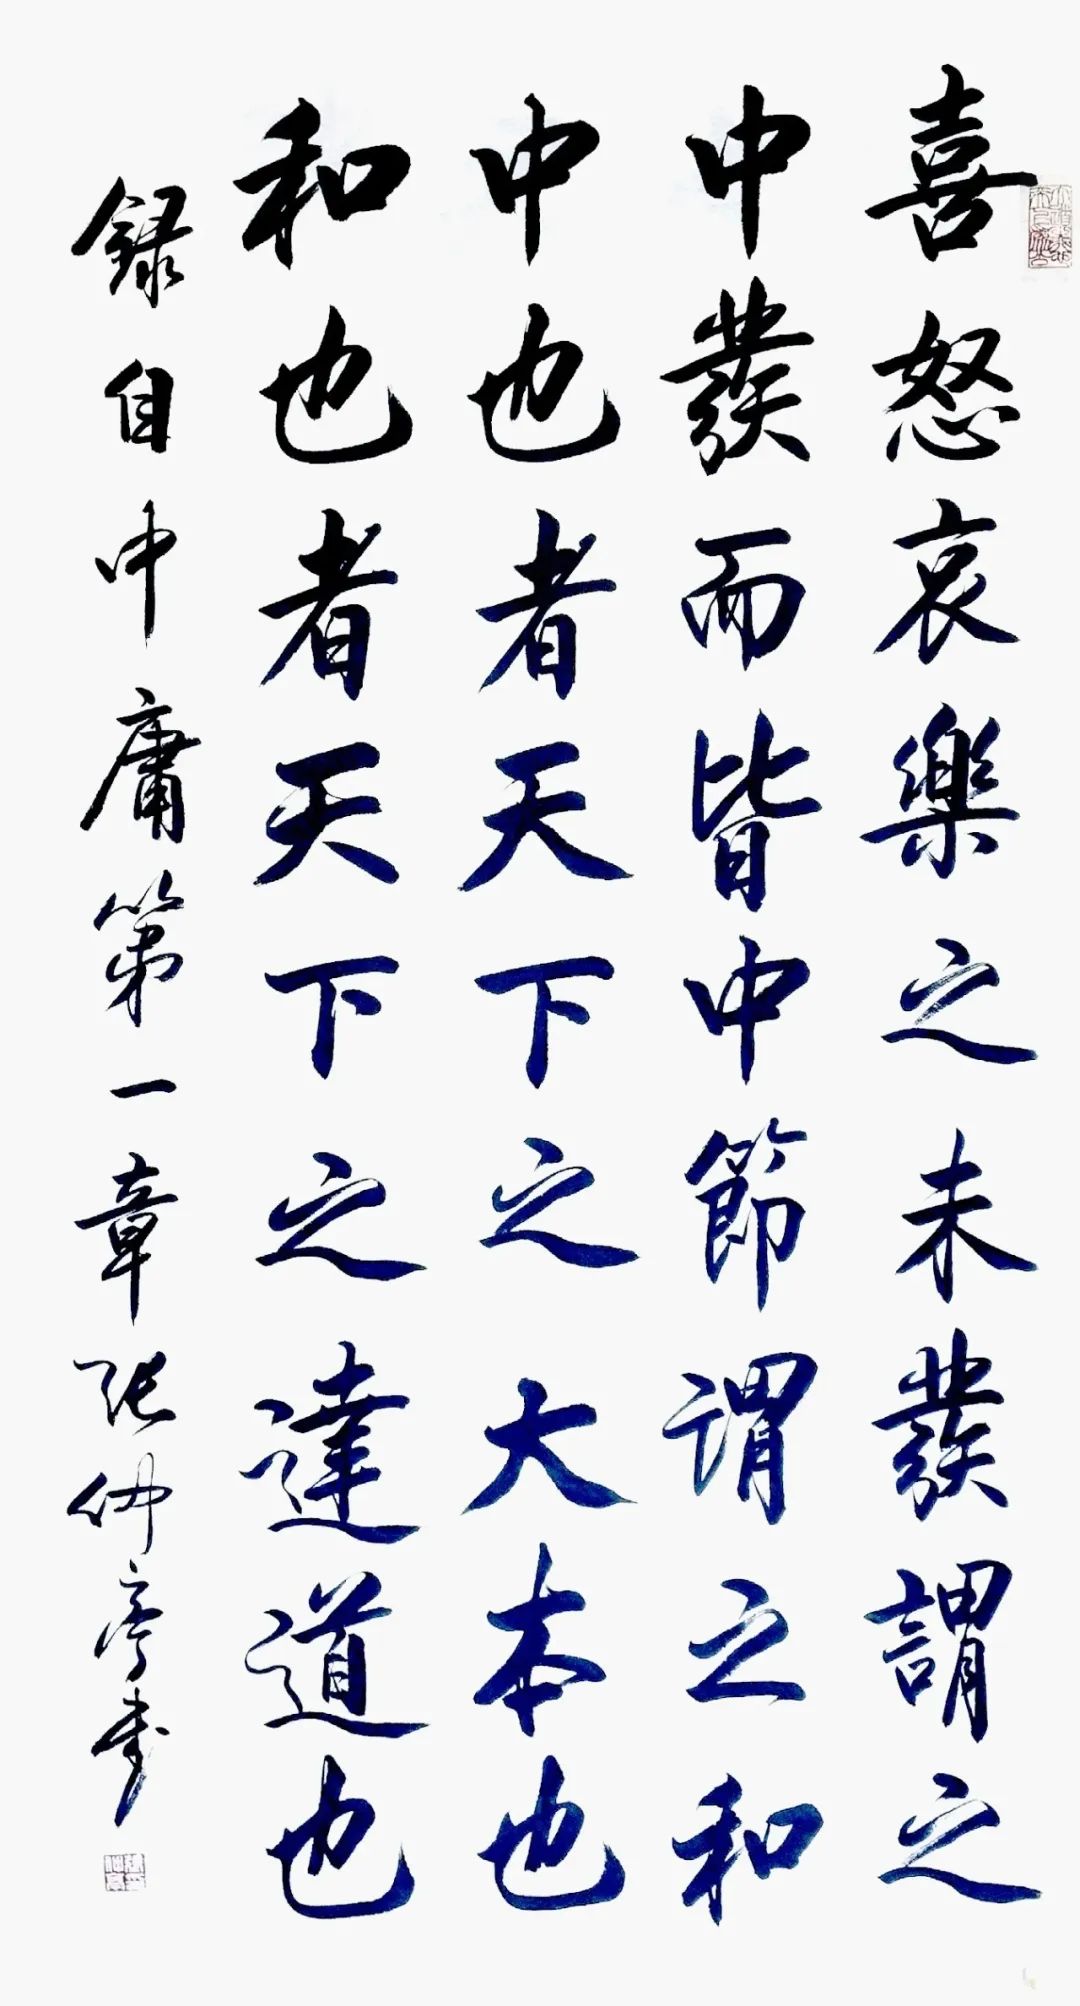 喜怒哀樂之未發謂之
中發而皆中節谓之和
中也者天下之大本也
和也者天下之達道也
錄自中庸第一章张仲亭書